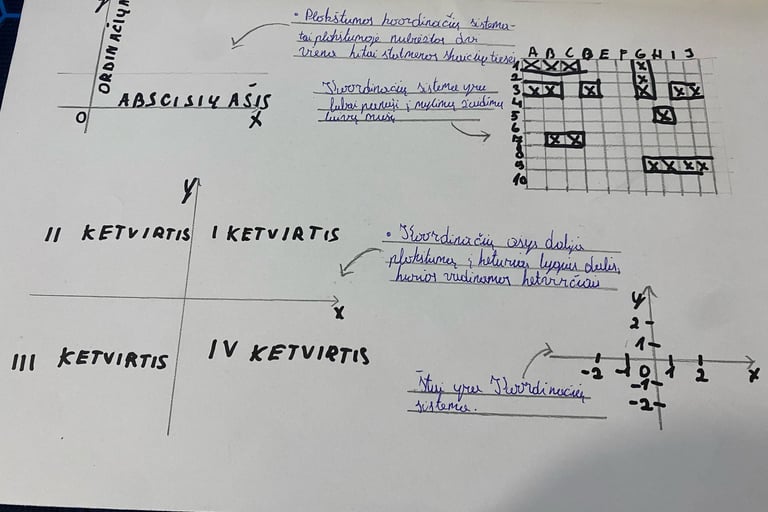 ORDINAČIŲ
ABSCISIŲ AŠIS
0
X
• Plokštumos koordinačių sistema-
tai plokštumoje nubrėžtos dvi
viena kitai statmenos skaičių tiesės
Koordinačių sistema yra
labai panaši į mylimą žaidimą
laivų mūšį
A B C D E F G H I J
1 X X X X
2 X
3 X X X X X X
4
5 X
6
7 X X
8
9 X X X X
10
y
II KETVIRTIS I KETVIRTIS
x
III KETVIRTIS IV KETVIRTIS
• Koordinačių ašys dalija
plokštumą į keturias lygias dalis,
kurios vadinamos ketvirčiais
y
2
1
-2 -1 0 1 2 x
-1
-2
Štai yra Koordinačių
sistema.